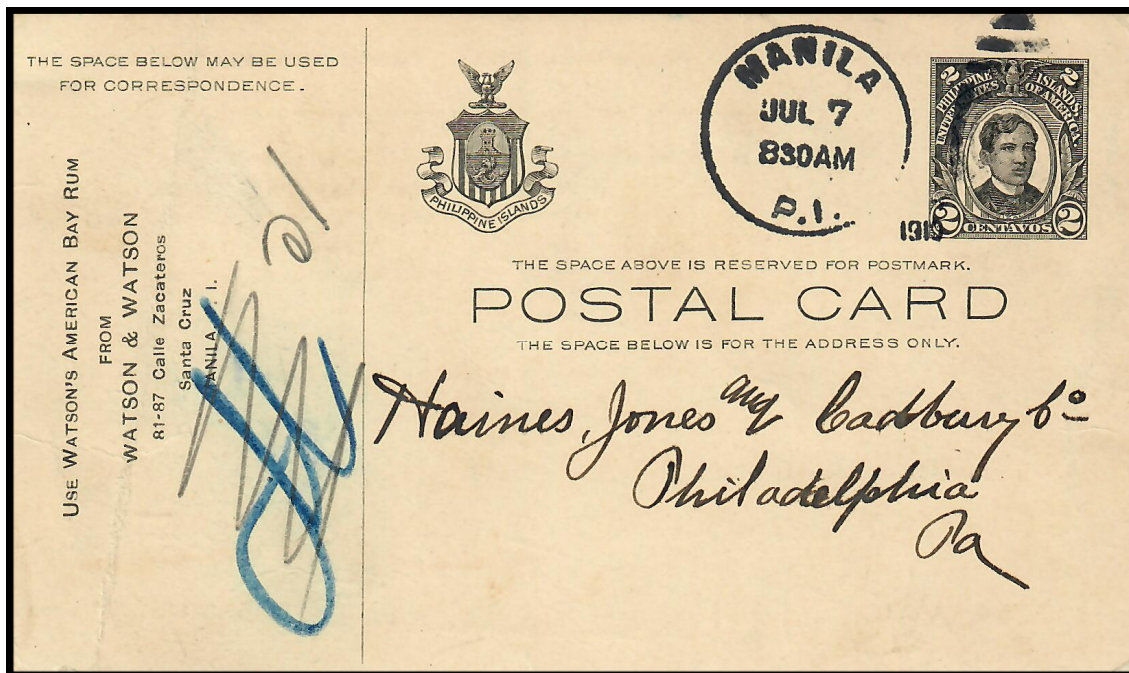 THE SPACE BELOW MAY BE USED
FOR CORRESPONDENCE.
USE WATSON'S AMERICAN BAY RUM
FROM
WATSON & WATSON
81-87 Calle Zacateros
Santa Cruz
ANILA . I.
PHILIPPINE ISLANDS
MANILA
JUL 7
830AM
P.I.
2 2
PHILIPPINE ISLANDS
UNITED STATES OF AMERICA.
2 CENTAVOS 2
THE SPACE ABOVE IS RESERVED FOR POSTMARK.
POSTAL CARD
THE SPACE BELOW IS FOR THE ADDRESS ONLY.
Haines, Jones and Cadbury Co
Philadelphia
Pa